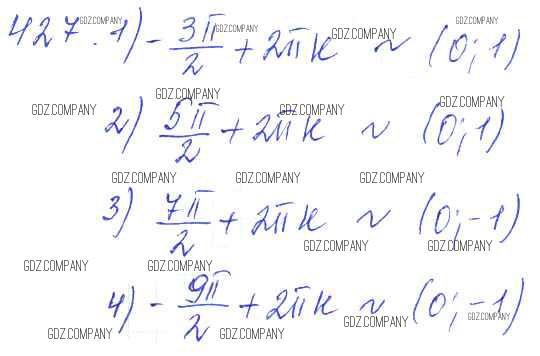 427. 1) - 3π/2 + 2πk ~ (0; 1)
2) 5π/2 + 2πk ~ (0; 1)
3) 7π/2 + 2πk ~ (0; -1)
4) - 9π/2 + 2πk ~ (0; -1)
GDZ.COMPANY GDZ.COMPANY GDZ.COMPANY GDZ.COMPANY
GDZ.COMPANY GDZ.COMPANY GDZ.COMPANY GDZ.COMPANY
GDZ.COMPANY GDZ.COMPANY GDZ.COMPANY
GDZ.COMPANY GDZ.COMPANY
GDZ.COMPANY GDZ.COMPANY
GDZ.COMPANY GDZ.COMPANY GDZ.COMPANY GDZ.COMPANY